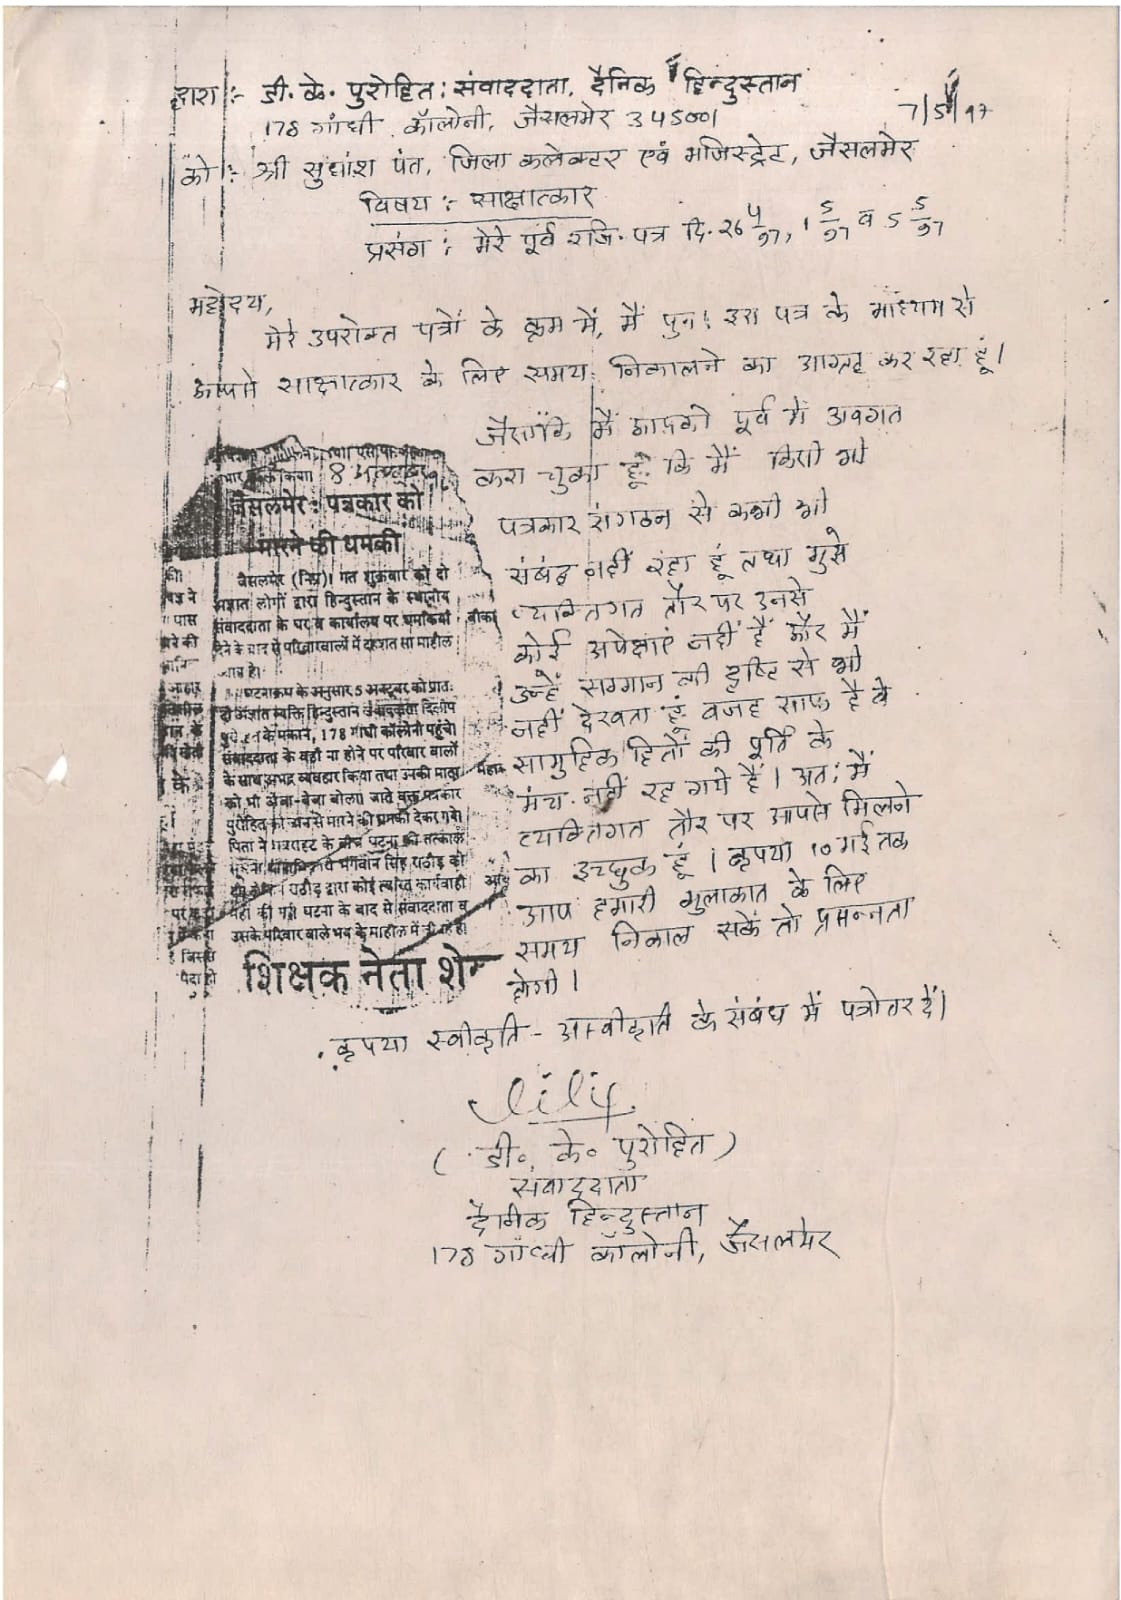 द्वारा :- डी. के. पुरोहित : संवाददाता, दैनिक हिन्दुस्तान
178 गांधी कॉलोनी, जैसलमेर 345001
7/5/97
को :- श्री सुधांश पंत, जिला कलेक्टर एवं मजिस्ट्रेट, जैसलमेर
विषय :- साक्षात्कार
प्रसंग : मेरे पूर्व रजि. पत्र दि. 26 4/97, 1 5/97 व 5 5/97
महोदय,
मेरे उपरोक्त पत्रों के क्रम में, मैं पुनः इस पत्र के माध्यम से
आपसे साक्षात्कार के लिए समय निकालने का आग्रह कर रहा हूं।
जैसाकि मैं आपको पूर्व में अवगत
करा चुका हूं कि मैं किसी भी
पत्रकार संगठन से कभी भी
संबंद्ध नहीं रहा हूं तथा मुझे
व्यक्तिगत तौर पर उनसे
कोई अपेक्षाएं नहीं हैं और मैं
उन्हें सम्मान की दृष्टि से भी
नहीं देखता हूं वजह साफ है वे
सामुहिक हितों की पूर्ति के
मंच नहीं रह गये हैं। अतः मैं
व्यक्तिगत तौर पर आपसे मिलने
का इच्छुक हूं। कृपया 10 मई तक
आप हमारी मुलाकात के लिए
समय निकाल सकें तो प्रसन्नता
होगी।
8 अक्टूबर
जैसलमेर : पत्रकार को
मारने की धमकी
जैसलमेर (निप्र)। गत शुक्रवार को दो
अज्ञात लोगों द्वारा हिन्दुस्तान के स्थानीय
संवाददाता के घर व कार्यालय पर धमकियां
देने के बाद से परिवारवालों में दहशत सा माहौल
व्याप्त है।
घटनाक्रम के अनुसार 5 अक्टूबर को प्रातः
दो अज्ञात व्यक्ति हिन्दुस्तान संवाददाता दिलीप
पुरोहित के मकान, 178 गांधी कॉलोनी पहुंचे।
संवाददाता के वहाँ ना होने पर परिवार वालों
के साथ अभद्र व्यवहार किया तथा उनकी माता
को भी अंबा-बेबा बोला। जाते वक्त पत्रकार
पुरोहित को जान से मारने की धमकी देकर गये।
पिता ने घबराहट के बीच घटना की तत्काल
भगवान सिंह राठौड़ को
राठौड़ द्वारा कोई त्वरित कार्यवाही
नहीं की गयी घटना के बाद से संवाददाता व
उसके परिवार वाले भय के माहौल में जी रहे हैं।
शिक्षक नेता
कृपया स्वीकृति - अस्वीकृति के संबंध में पत्रोत्तर दें।
Dilip
( डी॰ के॰ पुरोहित )
संवाददाता
दैनिक हिन्दुस्तान
178 गांधी कॉलोनी, जैसलमेर